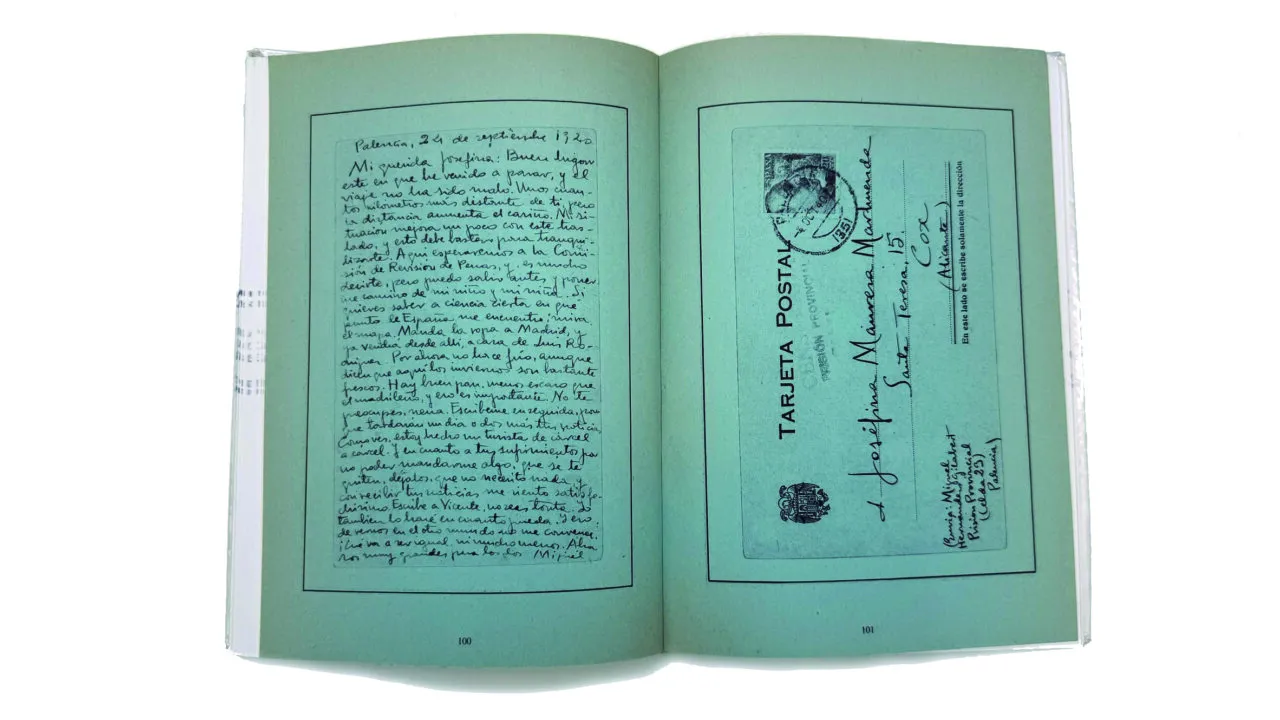 Palencia, 24 de septiembre 1940
Mi querida Josefina: Buen lugar
este en que he venido a parar, y el
viaje no ha sido malo. Unos cuan-
tos kilómetros más distante de ti, pero
la distancia aumenta el cariño. Mi si-
tuación mejora un poco con este tras-
lado, y esto debe bastar para tranqui-
lizarte. Aquí esperaremos a la Comi-
sión de Revisión de Penas, y es mucho
decirte, pero puedo salir antes y poner-
me camino de mi niño y mi niña. Si
quieres saber a ciencia cierta en qué
punto de España me encuentro, mira
el mapa. Manda la ropa a Madrid, y
ya vendrá desde allí, a casa de Luis Ro-
dríguez. Por ahora no hace frío, aunque
dicen que aquí los inviernos son bastante
frescos. Hay buen pan, menos escaso que
el madrileño, y eso es importante. No te
preocupes, nena. Escríbeme en seguida, por-
que tardarán un día o dos más tus noticias
Como ves, estoy hecho un turista de cárcel
a cárcel. Y en cuanto a tus sufrimientos por
no poder mandarme algo, que se te
quiten, déjalos, que no necesito nada, y
con recibir tus noticias me siento satisfe-
chísimo. Escribe a Vicente, no seas tonta. Yo
también lo haré en cuanto pueda. Y eso
de vernos en el otro mundo no me convence.
¡Qué va a ser igual, ni mucho menos. Abra-
zos muy grandes para los dos Miguel
100
TARJETA POSTAL
PRISIÓN PROVINCIAL
4 OCT 40
(35)
A Josefina Manresa Marhuenda
Santa Teresa, 15.
Cox
(Alicante)
En este lado se escribe solamente la dirección
Miguel
Hernández Gilabert
Prisión Provincial
(Celda 29)
Palencia)
101